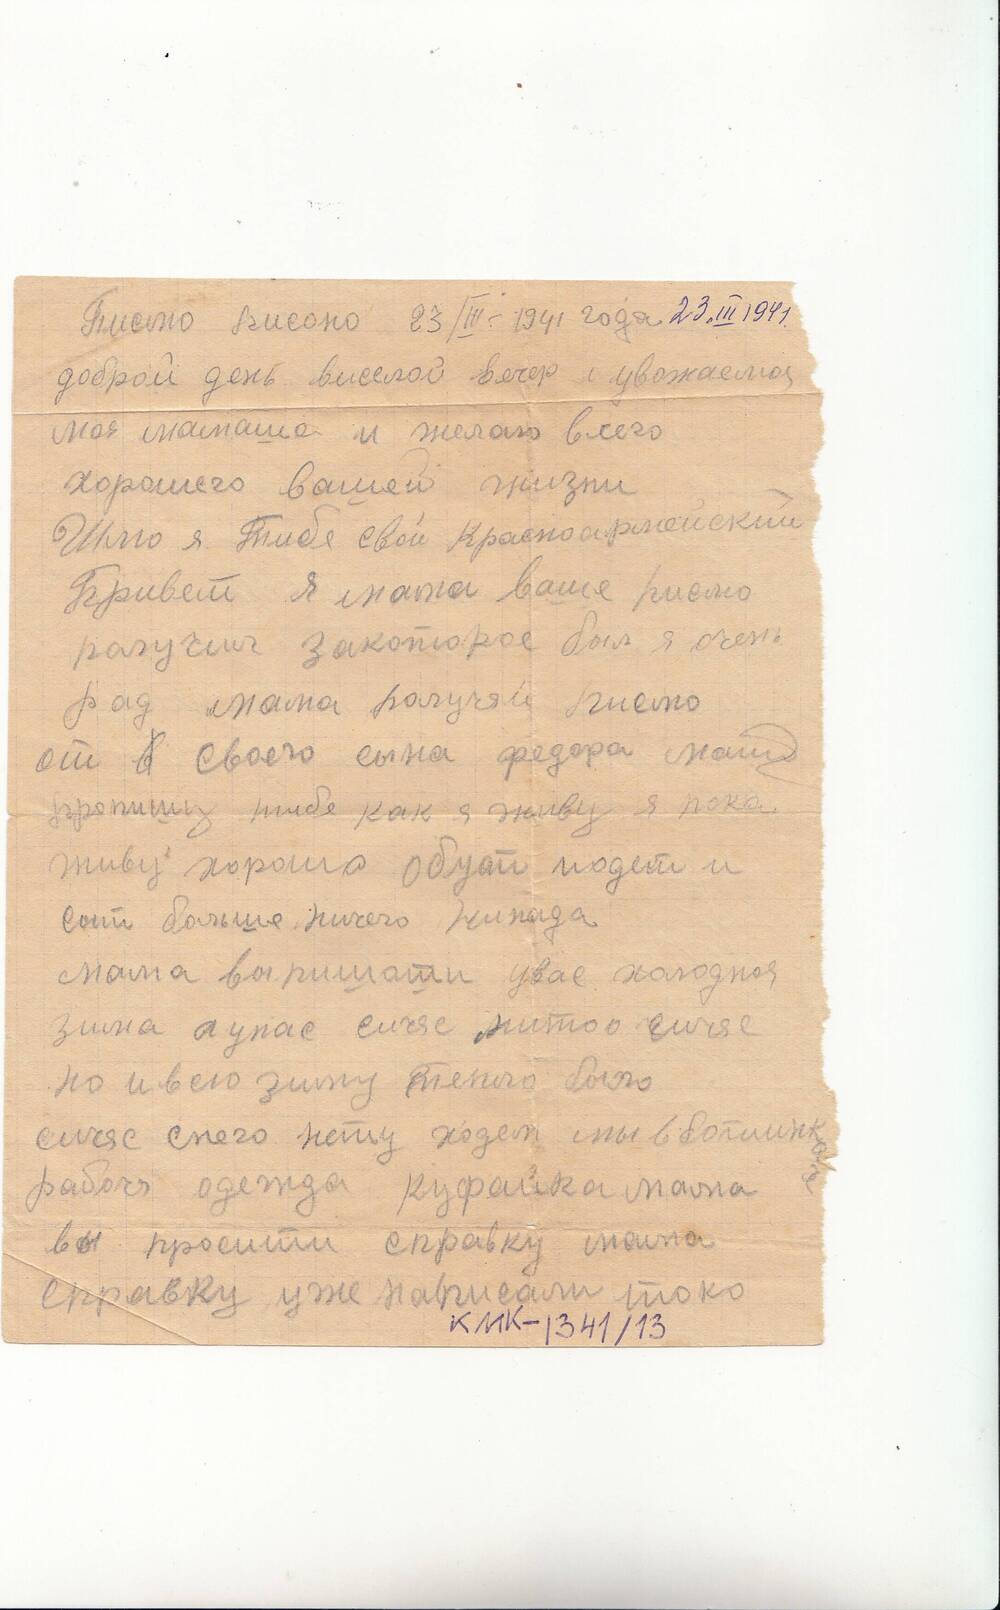 Писмо писоно 23/III - 1941 года 23.III 1941.
доброй день виселой вечер уважаемоя
моя мамаша и желаю всего
хорошего вашей жизни
Шлю я Тибе свой Красноармейский
Привет я мама ваше писмо
получил закоторое был я очень
рад мама получяй писмо
от своего сына федора мама
пропишу тибе как я живу я пока
живу хорошо обует иодет и
сыт больше ничего нинада
мама выпишити увас холодная
зима аунас сичяс литоо сичяс
но ивсю зиму тепло было
сичяс снего нету ходем мы вботинках
рабочя одежда куфайка мама
вы просити справку мама
справку уже написали токо
КМК-1341/13